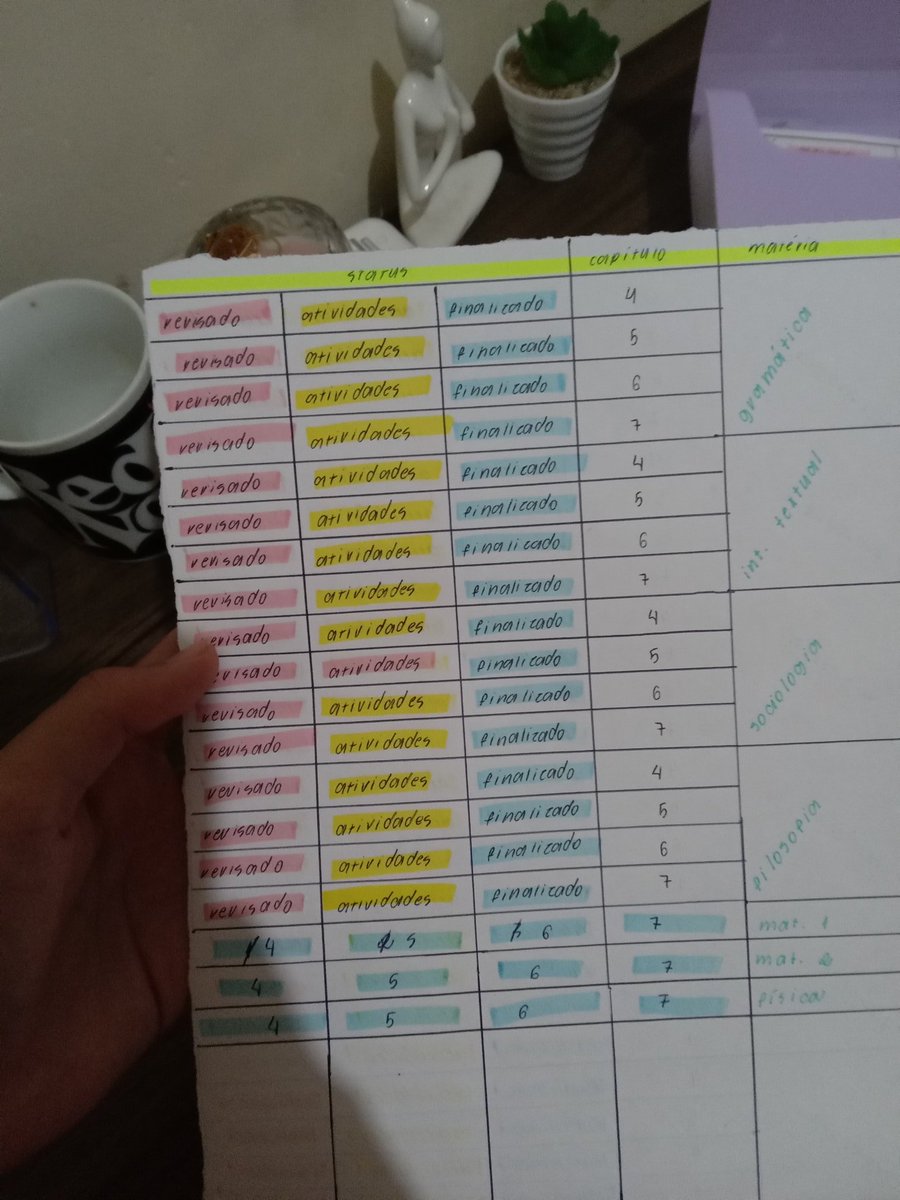 status capítulo matéria
revisado atividades finalizado 4
revisado atividades finalizado 5
revisado atividades finalizado 6
revisado atividades finalizado 7
gramática
revisado atividades finalizado 4
revisado atividades finalizado 5
revisado atividades finalizado 6
revisado atividades finalizado 7
int. textual
revisado atividades finalizado 4
revisado atividades finalizado 5
revisado atividades finalizado 6
revisado atividades finalizado 7
sociologia
revisado atividades finalizado 4
revisado atividades finalizado 5
revisado atividades finalizado 6
revisado atividades finalizado 7
filosofia
4 5 6 7 mat. 1
4 5 6 7 mat. 2
4 5 6 7 física